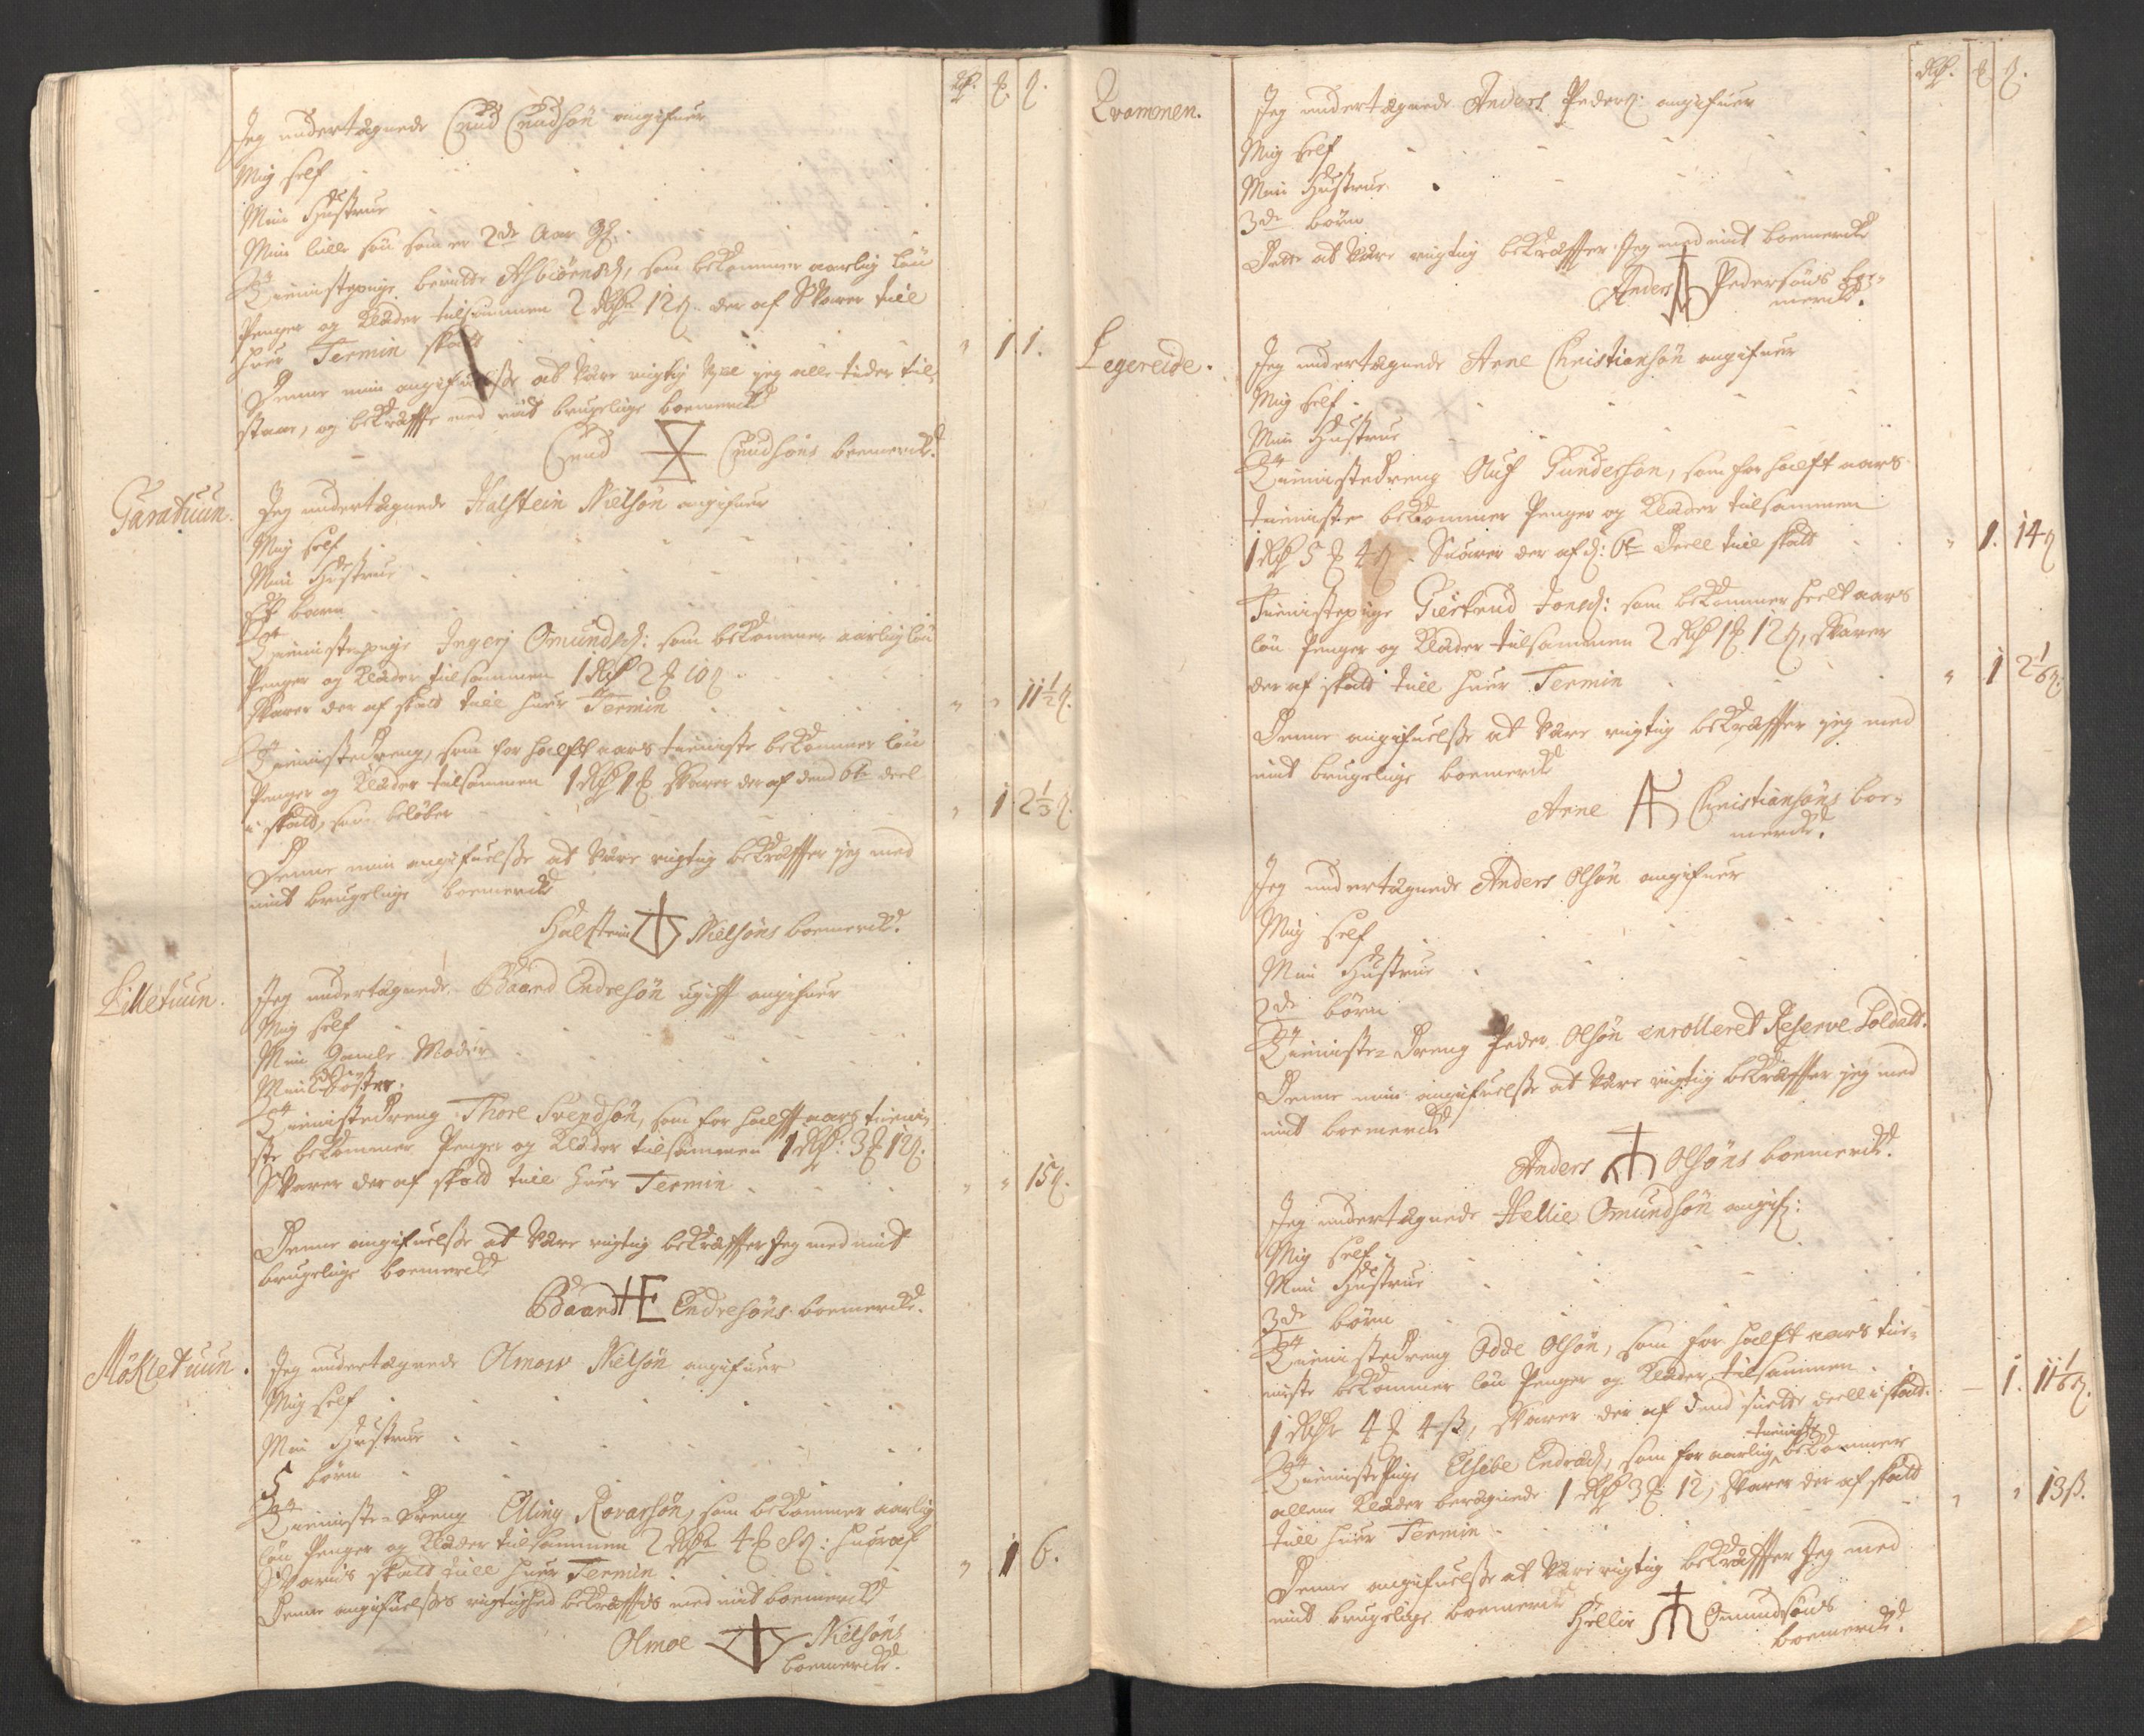 Rdr. ℳ. ß.
Jeg undertegnede Cnud Cnudsøn angifuer
Mig self
Min Hustrue
Min lille søn som er 2de Aar gl.
Tienistepige berette Asbiørnsd, som bekommer aarlig løn
Penger og Klæder tilsammen 2 Rdr 12 ß. der af Svarer till
huer Termin skatt " 1 1.
Denne min angifuelsse at Være rigtig Vill jeg alle tider til-
staae, og bekræffte med mit brugelige boemercke
Cnud Cnudsøns boemercke.
Taratuun. Jeg undertegnede Halstein Nielsøn angifuer
Mig self
Min Hustrue
Et barn
Tienistepige Ingerj Omundsd: som bekommer aarlig løn
Penger og Klæder tilsammen 1 Rdr 2 ℳ 10 ß
Svarer der af skatt till huer Termin " " 11½ ß.
Tienistedreng, som for halft aars tieniste bekommer løn
Penger og Klæder tilsammen 1 Rdr 1 ℳ Svarer der af dend 6te deel
i skatt, som beløber " 1 2⅓ ß.
Denne min angifuelsse at Være rigtig bekræffter jeg med
mit brugelige boemercke
Halstein Nielsøns boemercke.
Lilletuun. Jeg undertegnede Baard Endresøn ugifft angifuer
Mig self
Min gamle Moder
Min Søster.
Tienistedreng Thore Svendsøn, som for halft aars tieni-
ste bekommer Penger og Klæder tilsammen 1 Rdr: 3 ℳ 12 ß.
Svarer der af skatt till huer Termin " " 15 ß.
Denne angifuelsse at Være rigtig bekræffter Jeg med mit
brugelige boemercke
Baard Endresøns boemercke.
Møkletuun. Jeg undertegnede Olmow Nielsøn angifuer
Mig self
Min Hustrue
5 børn
Tieniste-Dreng Elling Rovarsøn, som bekommer aarlig
løn Penger og Klæder tilsammen 2 Rdr 4 ℳ 8 ß: huoraf
Svaris skatt till huer Termin " 1 6.
Denne angifuelsses rigtighed bekræfftis med mit boemercke
Olmoe Nielsøns
boemercke.
Rdr. ℳ ß.
Qvammen. Jeg undertegnede Anders Peders: angifuer
Mig self
Min Hustrue
3de børn
Dette at Være rigtig bekræffter Jeg med mit boemercke
Anders Pedersøns boe-
mercke.
Legereide. Jeg undertegnede Arne Christiansøn angifuer
Mig self
Min Hustrue
Tienistedreng Oluf Gundersøn, som for halft aars
tieniste bekommer Penger og Klæder tilsammen
1 Rdr 5 ℳ 4 ß. Svarer der af d: 6te Deell till skatt " 1. 14 ß
Tienistepige Giertrud Jonsd: som bekommer heelt aars
løn Penger og Klæder tilsammen 2 Rdr 1 ℳ 12 ß, Svarer
der af skatt till huer Termin " 1 2⅙ ß.
Denne angifuelsse at Være rigtig bekræffter jeg med
mit brugelige boemercke
Arne Christiansøns boe-
mercke.
Jeg undertegnede Anders Olsøn angifuer
Mig self
Min Hustrue
2de børn
Tieniste-Dreng Peder Olsøn enrolleret Reserve Soldatt.
Denne min angifuelsse at Være rigtig bekræffter jeg med
mit boemercke
Anders Olsøns boemercke.
Jeg undertegnede Hellie Omundsøn angif:
Mig self
Min Hustrue
3de børn
Tienistedreng Odde Olsøn, som for halft aars tie-
niste bekommer løn Penger og Klæder tilsammen
1 Rdr 4 ℳ 4 ß, Svarer der af dend siette deell i skatt. – 1. 11⅙ ß.
TienistePige Elsebe Endresd, som for aarlig tieniste bekommer
allene Klæder beregnede 1 Rdr 3 ℳ 12, Svarer der af skatt
till huer Termin " " 13 ß.
Denne angifuelsse at Være rigtig bekræffter Jeg med
mit brugelige boemercke Hellie Omundsøns
boemercke.